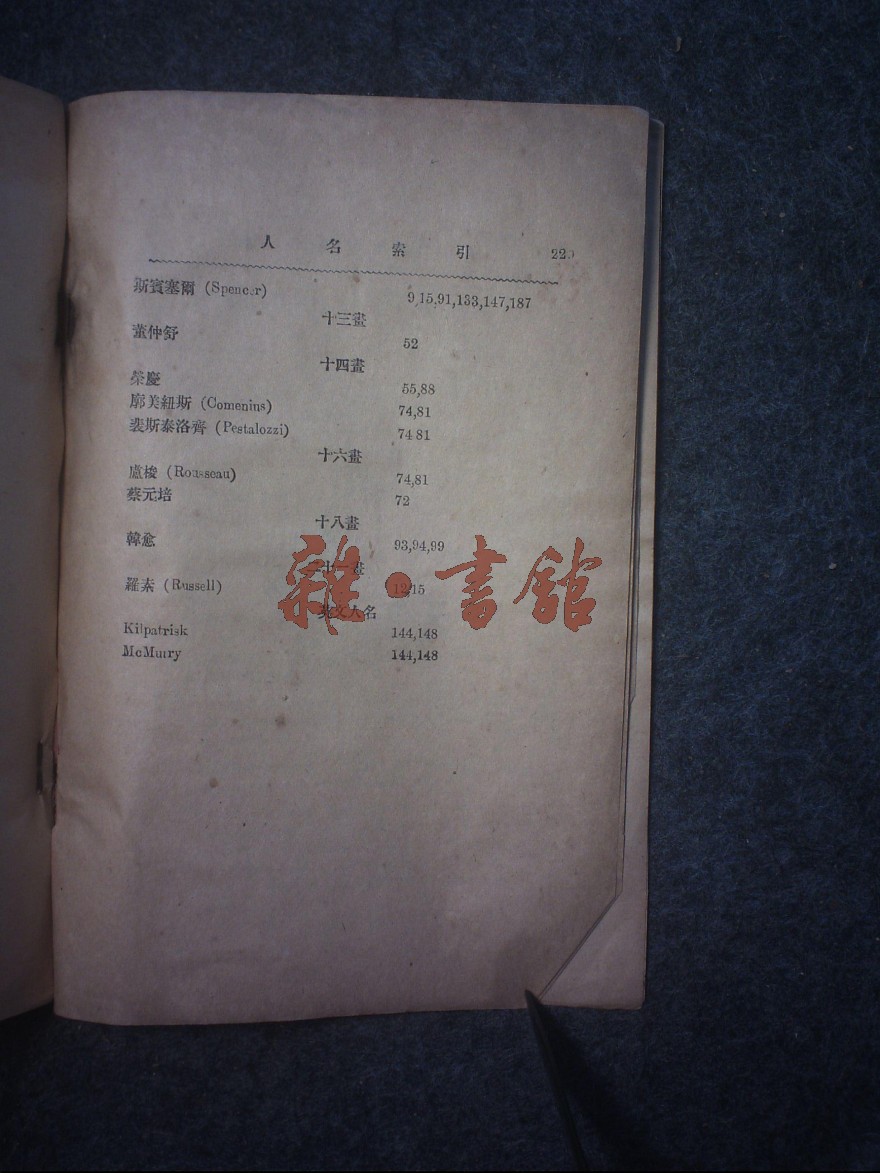 人名索引
斯賓塞爾 (Spencer) 9,15,91,133,147,187
十三畫
董仲舒 52
十四畫
榮慶 55,88
廓美紐斯 (Comenius) 74,81
裴斯泰洛齊 (Pestalozzi) 74 81
十六畫
盧梭 (Rousseau) 74,81
蔡元培 72
十八畫
韓愈 93,94,99
二十一畫
羅素 (Russell) 12,15
英文人名
Kilpatrisk 144,148
McMurry 144,148
雜·書館